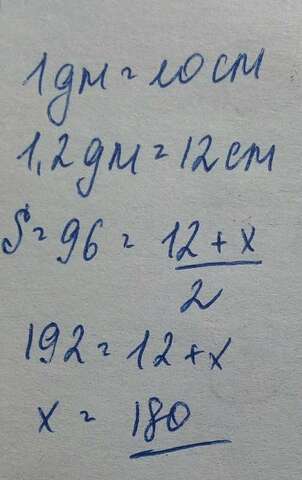 1дм = 10 см
1,2 дм = 12 см
S = 96 = 12 + x
2
192 = 12 + x
x = 180